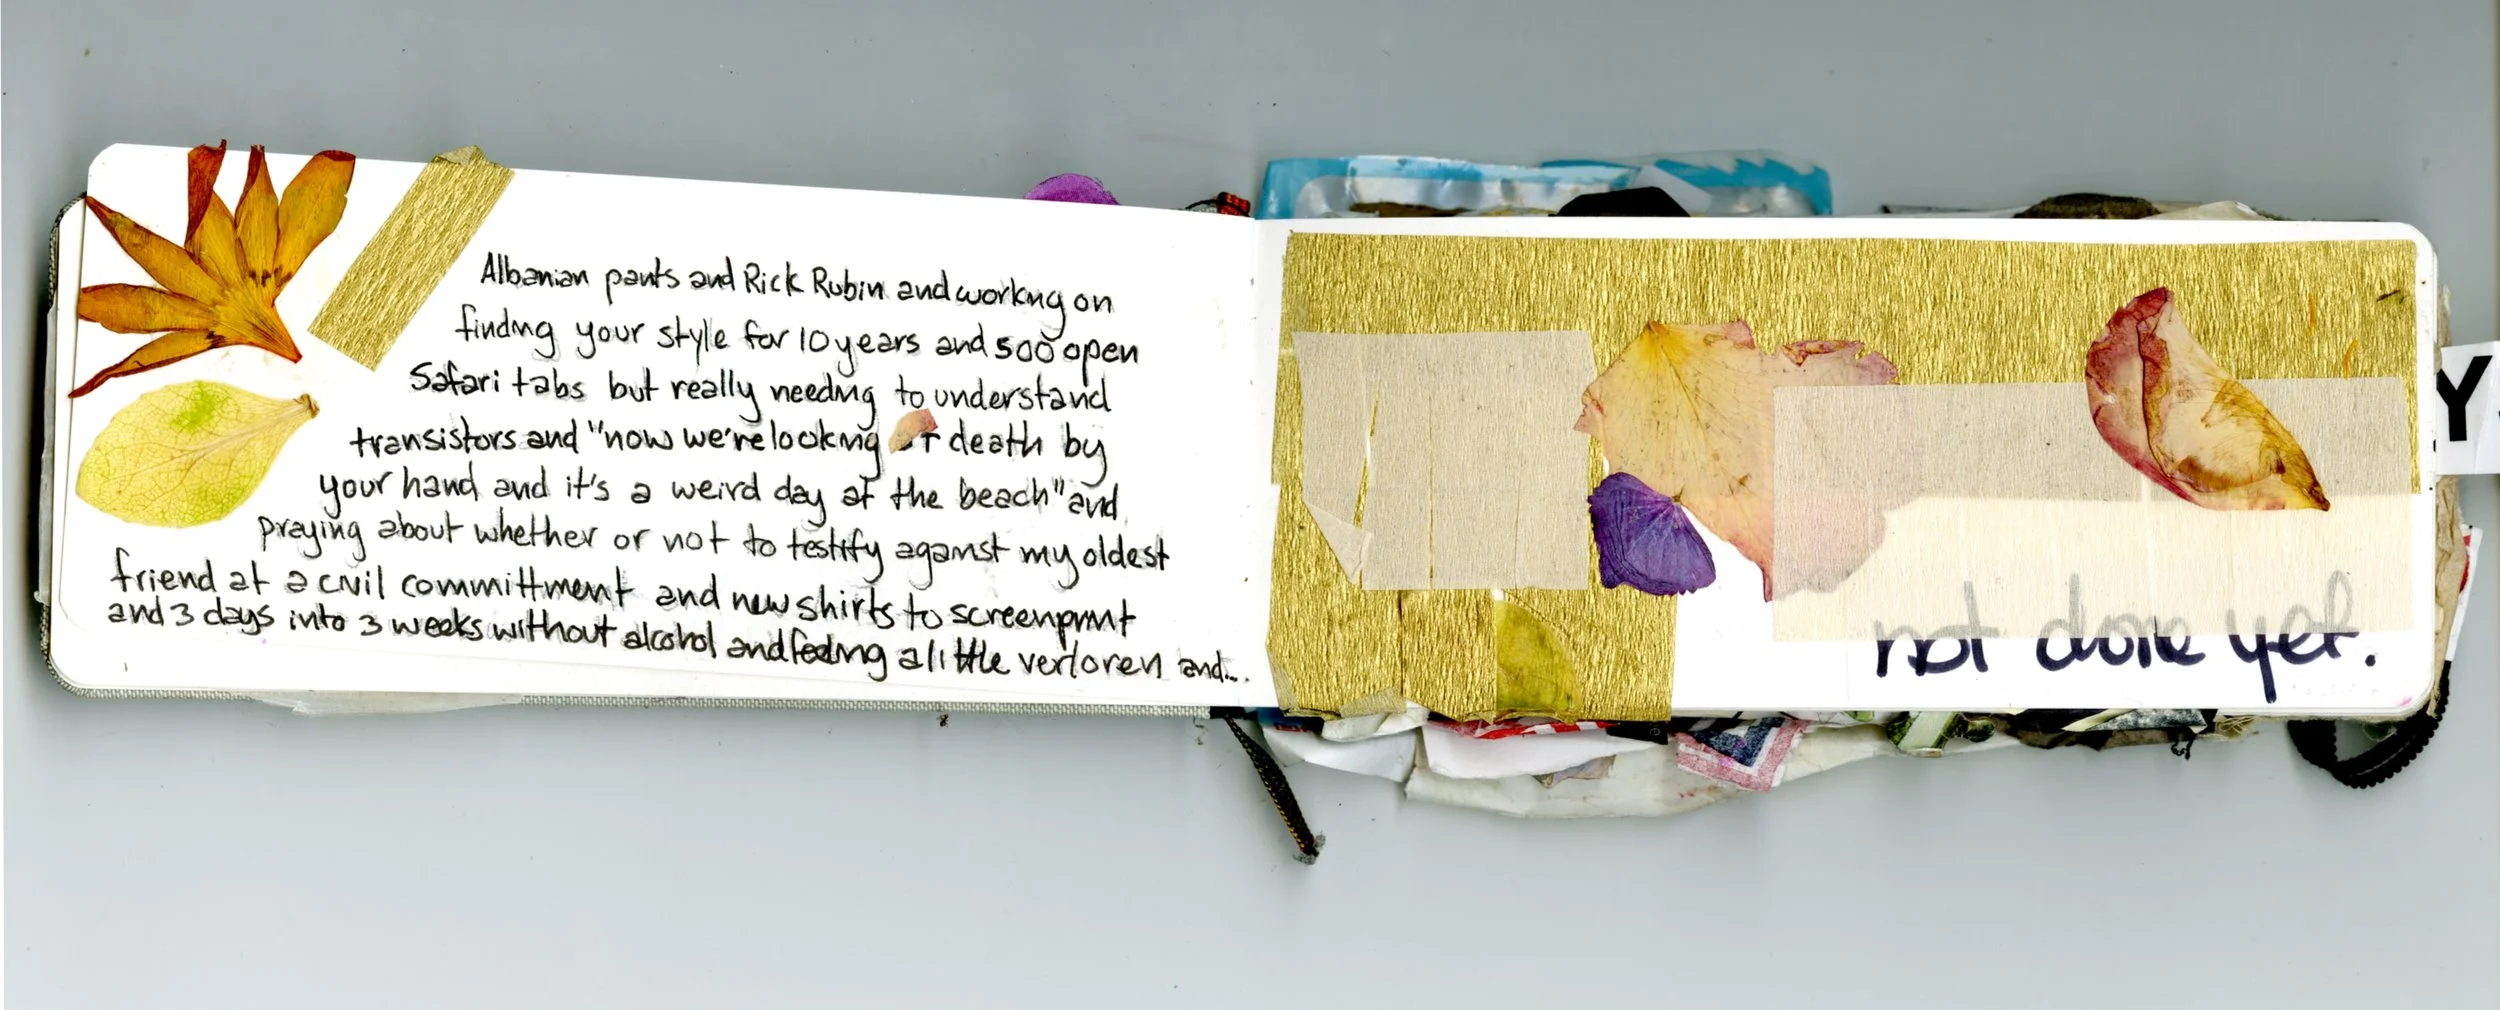 Albanian pants and Rick Rubin and working on
finding your style for 10 years and 500 open
Safari tabs but really needing to understand
transistors and "now we're looking death by
your hand and it's a weird day at the beach" and
praying about whether or not to testify against my oldest
friend at a civil committment and new shirts to screenprint
and 3 days into 3 weeks without alcohol and feeling a little verloren and...
not done yet.
Y